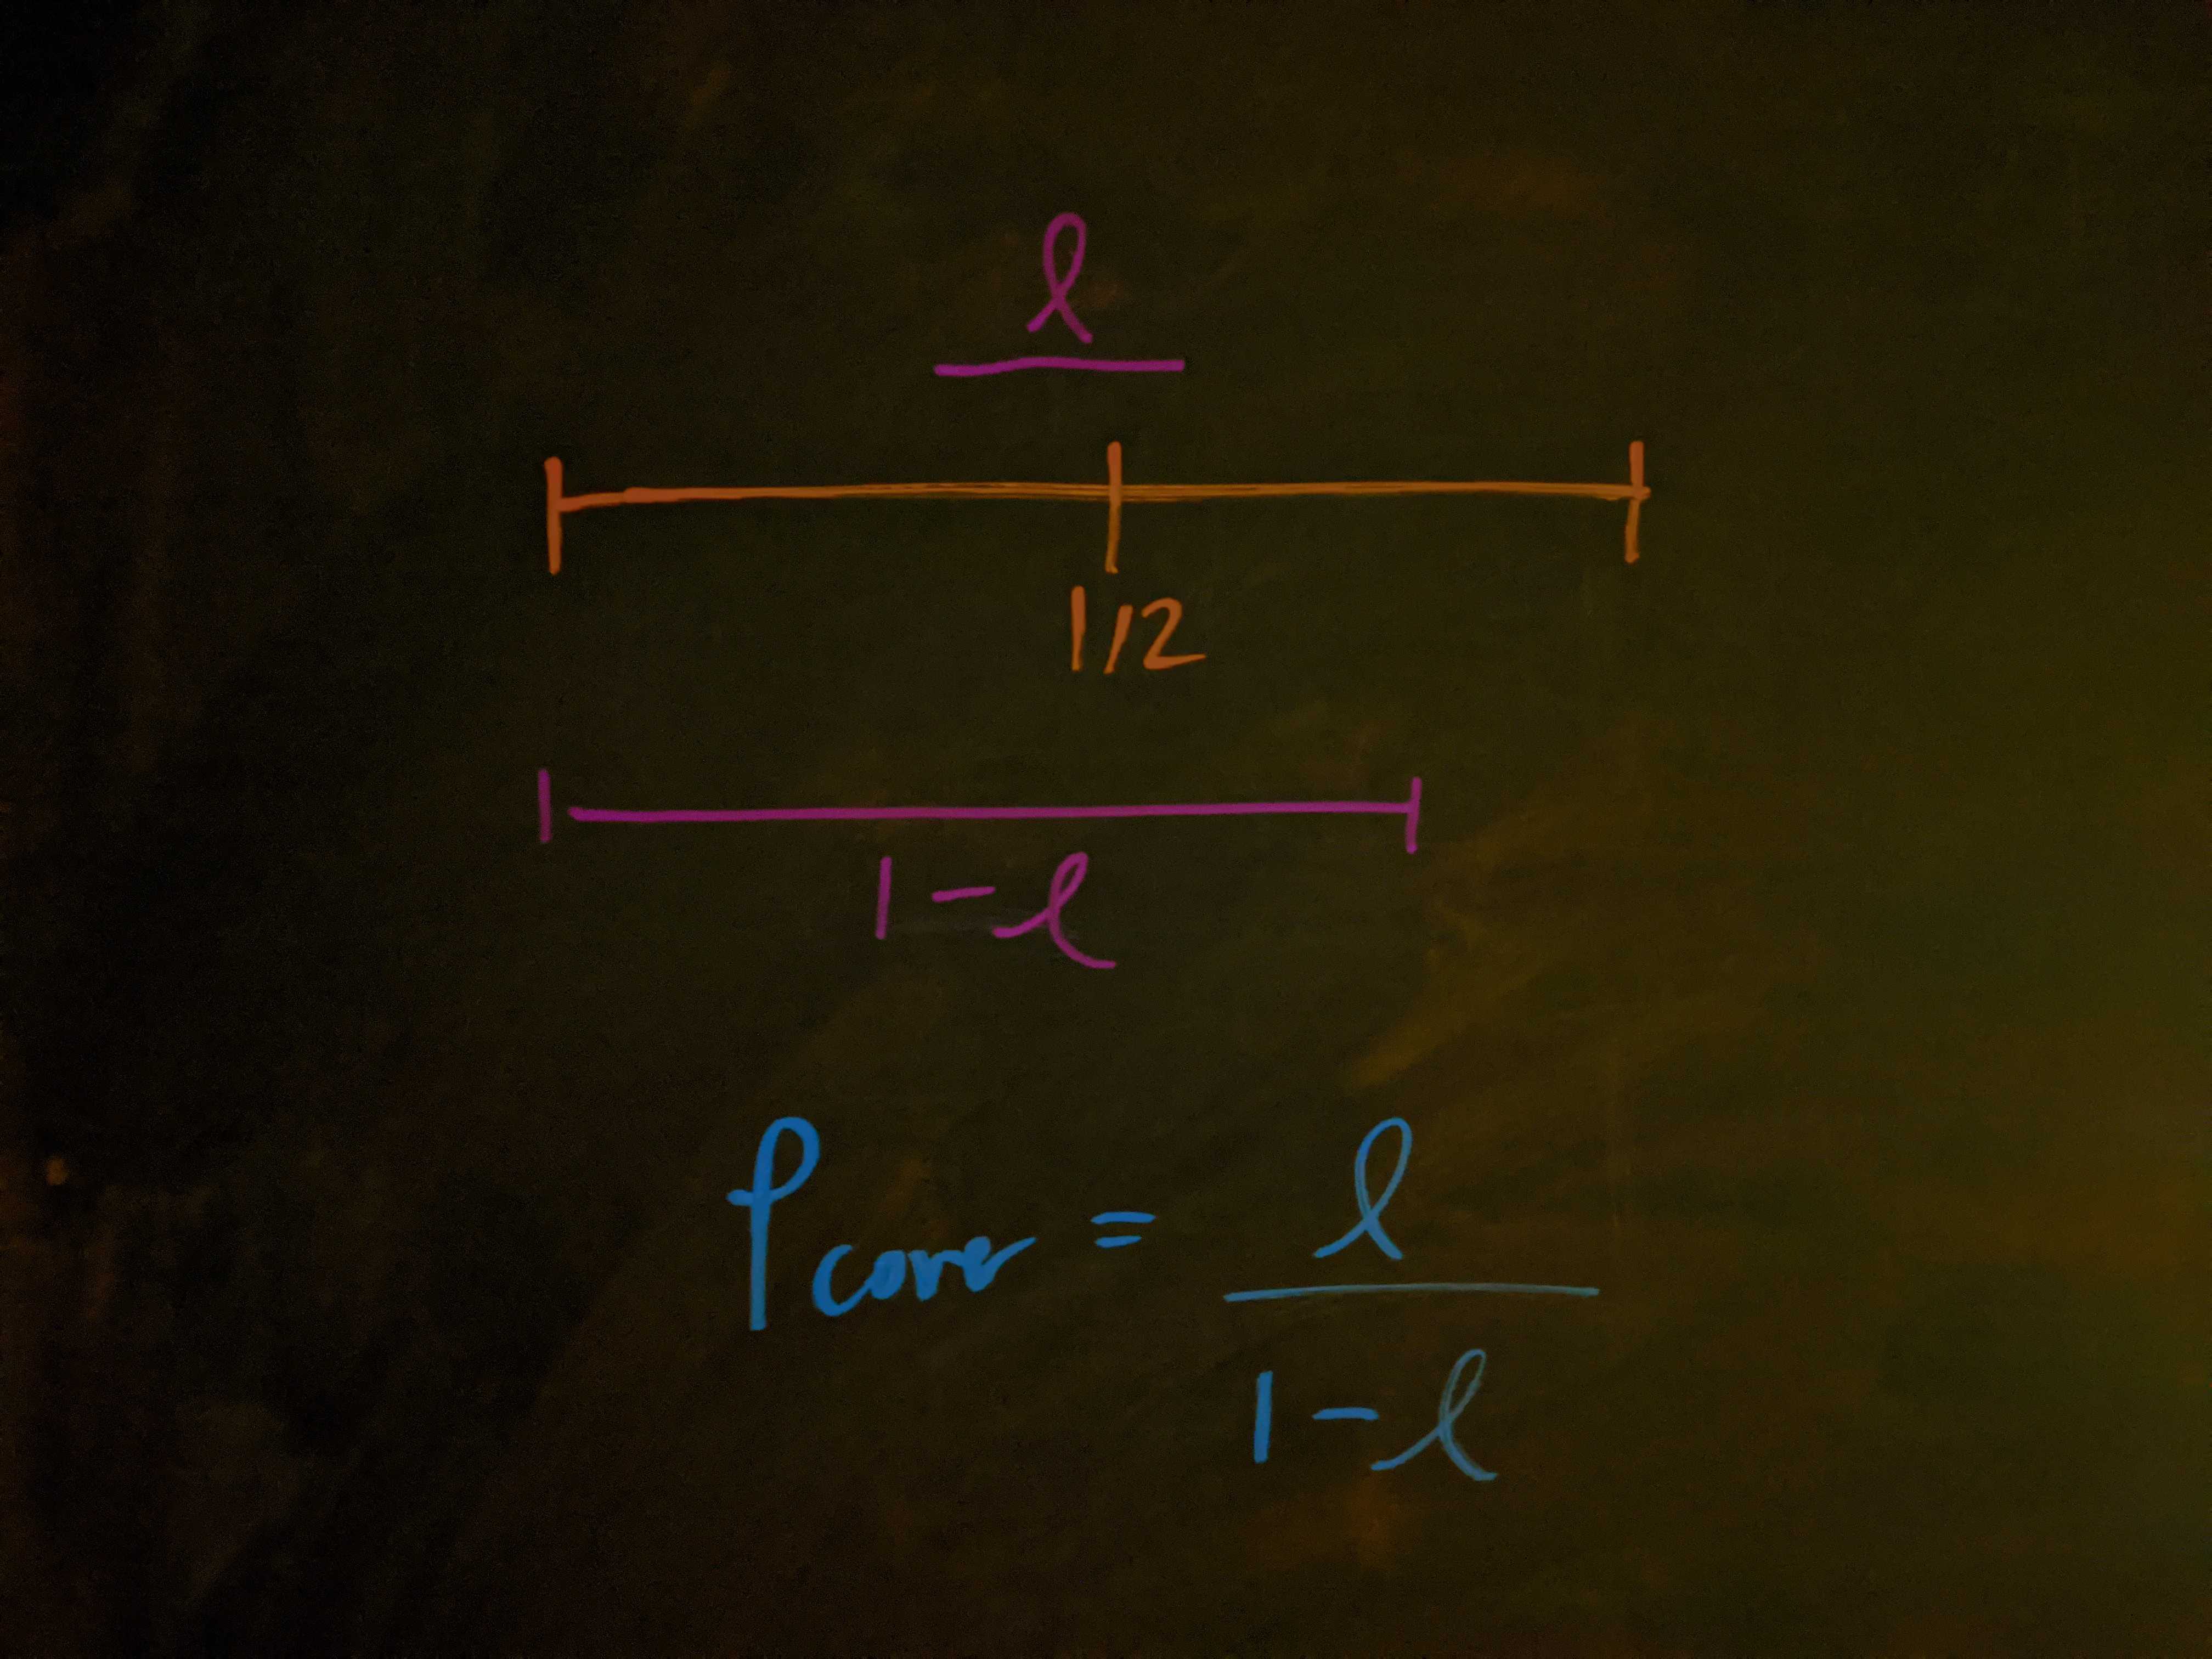 ℓ
1/2
1-ℓ
Pcover = ℓ
1-ℓ